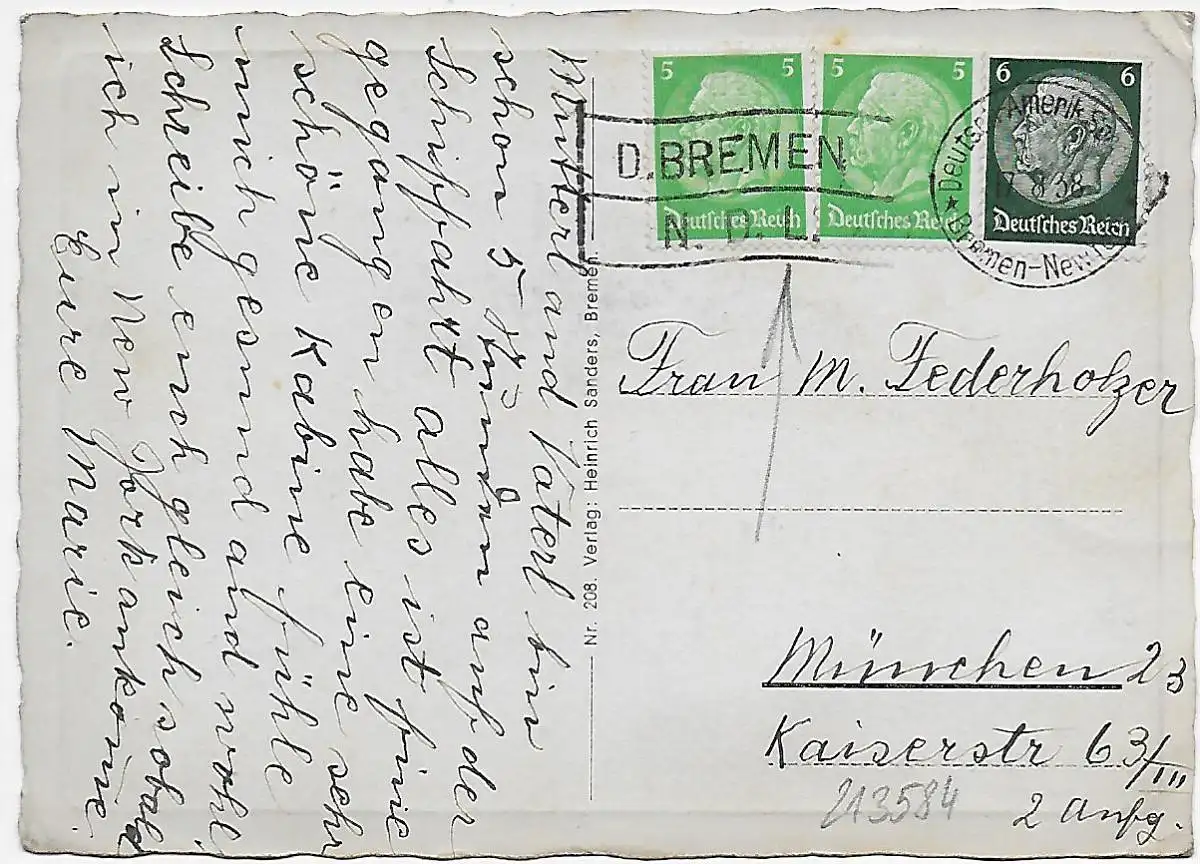 5 5
5 5
6 6
Deutsches Reich
Deutsches Reich
Deutsches Reich
D. BREMEN
N. D. L.
17.8.38
Bremen-New
Mutterl und Vaterl bin
schon 5 Stunden auf der
Schiffahrt alles ist fine
gegangen habe eine sehr
schöne Kabine fühle
mich gesund und wohl.
Schreibe euch gleich sobald
ich in New Jork ankom̅e.
Eure Marie.
Nr. 208. Verlag: Heinrich Sanders, Bremen.
Frau M. Federholzer
München 23
Kaiserstr 63/III
2 Aufg.
213584